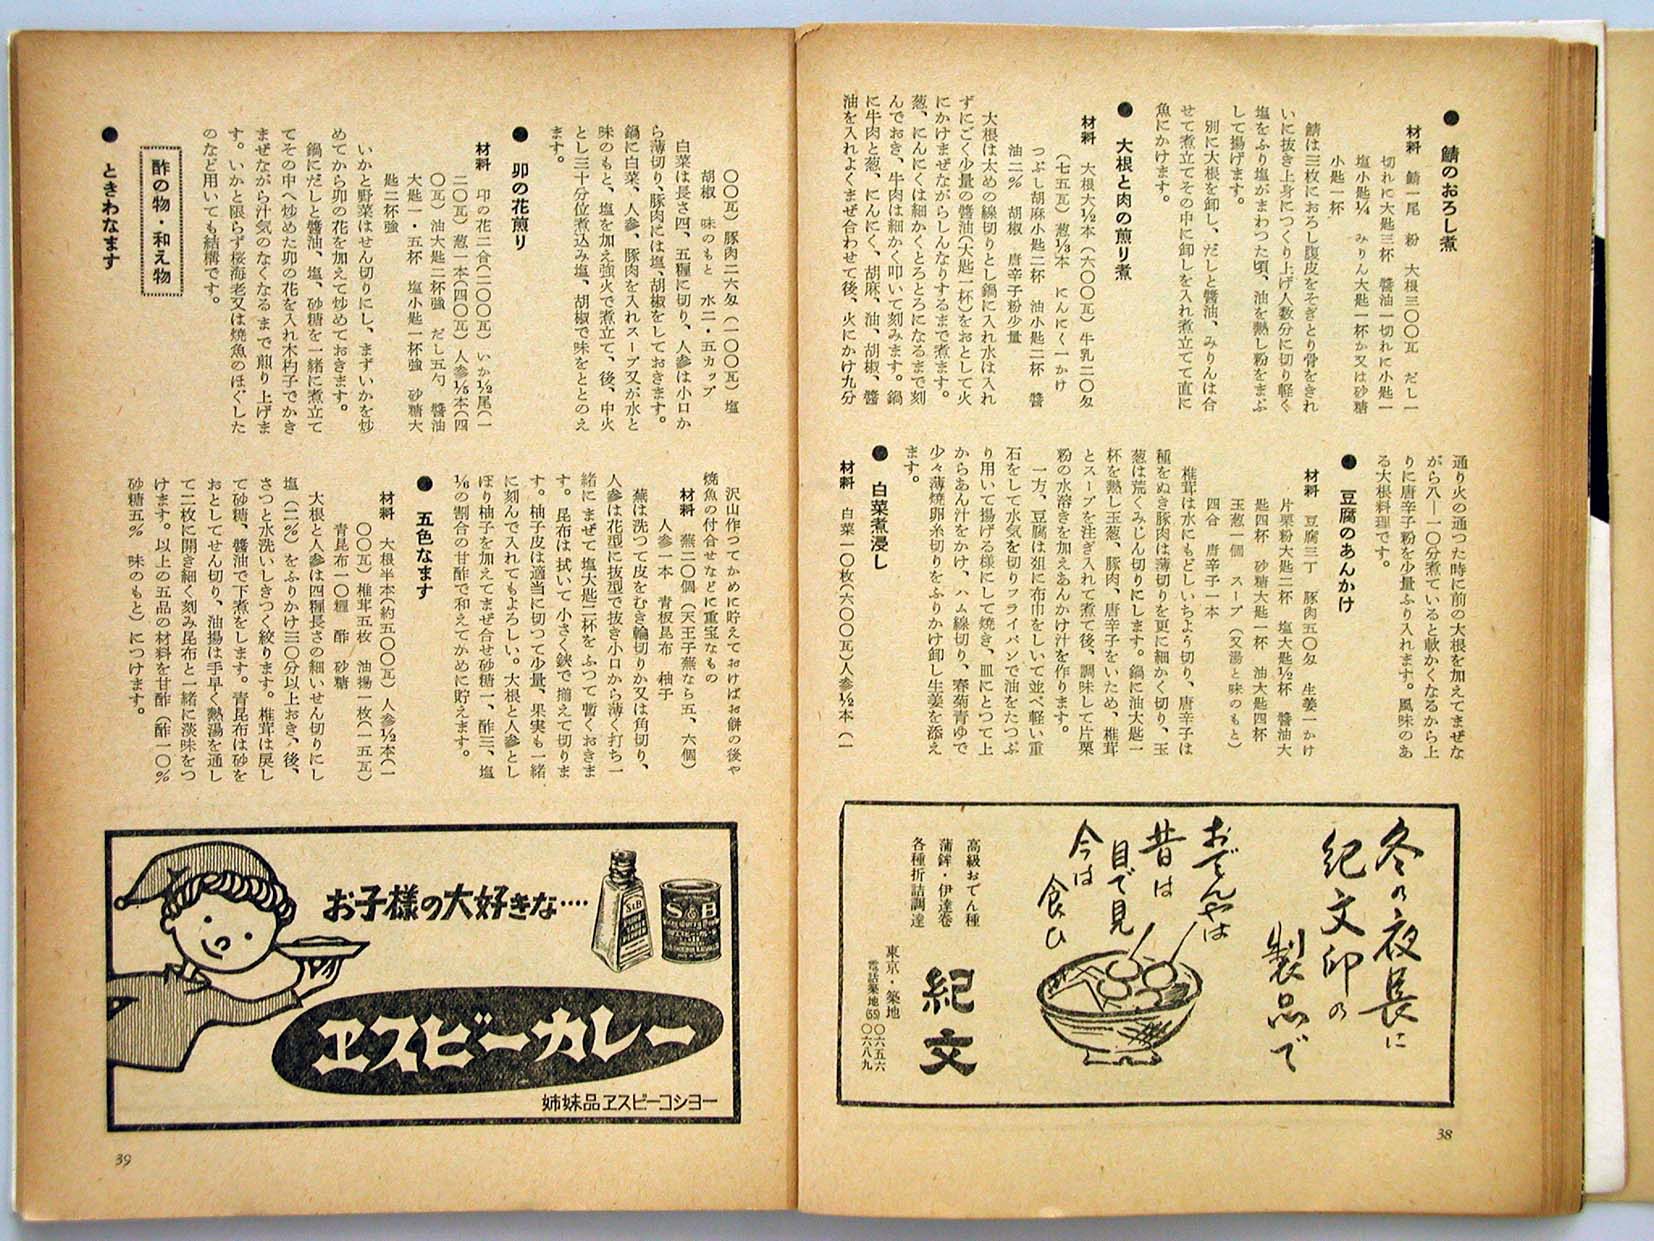 ● 鯖のおろし煮
材料　鯖一尾　粉　大根三〇〇瓦　だし一
切れに大匙三杯　醬油一切れに小匙一
塩小匙¼　みりん大匙一杯か又は砂糖
小匙一杯
鯖は三枚におろし腹皮をそぎとり骨をきれ
いに抜き上身につくり上げ人数分に切り軽く
塩をふり塩がまわつた頃、油を熱し粉をまぶ
して揚げます。
別に大根を卸し、だしと醬油、みりんは合
せて煮立てその中に卸しを入れ煮立てて直に
魚にかけます。
● 大根と肉の煎り煮
材料　大根大½本（六〇〇瓦）牛乳二〇匁
（七五瓦）葱⅓本　にんにく一かけ
つぶし胡麻小匙二杯　油小匙二杯　醬
油二％　胡椒　唐辛子粉少量
大根は太めの線切りとし鍋に入れ水は入れ
ずにごく少量の醬油（大匙一杯）をおとして火
にかけまぜながらしんなりするまで煮ます。
葱、にんにくは細かくとろとろになるまで刻
んでおき、牛肉は細かく叩いて刻みます。鍋
に牛肉と葱、にんにく、胡麻、油、胡椒、醬
油を入れよくまぜ合わせて後、火にかけ九分
通り火の通つた時に前の大根を加えてまぜな
がら八―一〇分煮ていると軟かくなるから上
りに唐辛子粉を少量ふり入れます。風味のあ
る大根料理です。
● 豆腐のあんかけ
材料　豆腐三丁　豚肉五〇匁　生姜一かけ
片栗粉大匙二杯　塩大匙½杯　醬油大
匙四杯　砂糖大匙一杯　油大匙四杯
玉葱一個　スープ（又湯と味のもと）
四合　唐辛子一本
椎茸は水にもどしいちよう切り、唐辛子は
種をぬき豚肉は薄切りを更に細かく切り、玉
葱は荒くみじん切りにします。鍋に油大匙一
杯を熱し玉葱、豚肉、唐辛子をいため、椎茸
とスープを注ぎ入れて煮て後、調味して片栗
粉の水溶きを加えあんかけ汁を作ります。
一方、豆腐は俎に布巾をしいて並べ軽い重
石をして水気を切りフライパンで油をたつぷ
り用いて揚げる様にして焼き、皿にとつて上
からあん汁をかけ、ハム線切り、春菊青ゆで
少々薄焼卵糸切りをふりかけ卸し生姜を添え
ます。
● 白菜煮浸し
材料　白菜一〇枚（六〇〇瓦）人参½本（一
冬の夜長に
紀文印の
製品で
おでんやは
昔は
目で見
今は
食ひ
高級おでん種
蒲鉾・伊達巻
各種折詰調達
紀文
東京・築地
電話築地(55)〇六五六
〇六八九
38
〇〇瓦）豚肉二六匁（一〇〇瓦）塩
胡椒　味のもと　水二・五カップ
白菜は長さ四、五糎に切り、人参は小口か
ら薄切り、豚肉には塩、胡椒をしておきます。
鍋に白菜、人参、豚肉を入れスープ又が水と
味のもと、塩を加え強火で煮立て、後、中火
とし三十分位煮込み塩、胡椒で味をととのえ
ます。
● 卯の花煎り
材料　卯の花二合（二〇〇瓦）いか½尾（一
二〇瓦）葱一本（四〇瓦）人参⅕本（四
〇瓦）油大匙二杯強　だし五勺　醬油
大匙一・五杯　塩小匙一杯強　砂糖大
匙二杯強
いかと野菜はせん切りにし、まずいかを炒
めてから卯の花を加えて炒めておきます。
鍋にだしと醬油、塩、砂糖を一緒に煮立て
てその中へ炒めた卯の花を入れ木杓子でかき
まぜながら汁気のなくなるまで煎り上げま
す。いかと限らず桜海老又は焼魚のほぐした
のなど用いても結構です。
酢の物・和え物
● ときわなます
沢山作つてかめに貯えておけばお餅の後や
焼魚の付合せなどに重宝なもの
材料　蕪二〇個（天王子蕪なら五、六個）
人参一本　青板昆布　柚子
蕪は洗つて皮をむき輪切りか又は角切り、
人参は花型に抜型で抜き小口から薄く打ち一
緒にまぜて塩大匙二杯をふつて暫くおきま
す。昆布は拭いて小さく鋏で揃えて切りま
す。柚子皮は適当に切つて少量、果実も一緒
に刻んで入れてもよろしい。大根と人参とし
ぼり柚子を加えてまぜ合せ砂糖一、酢三、塩
⅙の割合の甘酢で和えてかめに貯えます。
● 五色なます
材料　大根半本（約五〇〇瓦）人参½本（一
〇〇瓦）椎茸五枚　油揚一枚（一五瓦）
青昆布一〇糎　酢　砂糖
大根と人参は四糎長さの細いせん切りにし
塩（二％）をふりかけ三〇分以上おき、後、
さつと水洗いしきつく絞ります。椎茸は戻し
て砂糖、醬油で下煮をします。青昆布は砂を
おとしてせん切り、油揚は手早く熱湯を通し
て二枚に開き細く刻み昆布と一緒に淡味をつ
けます。以上の五品の材料を甘酢（酢一〇％
砂糖五％　味のもと）につけます。
お子様の大好きな‥‥
S&B
S&B
ヱスビーカレー
姉妹品ヱスビーコショー
39